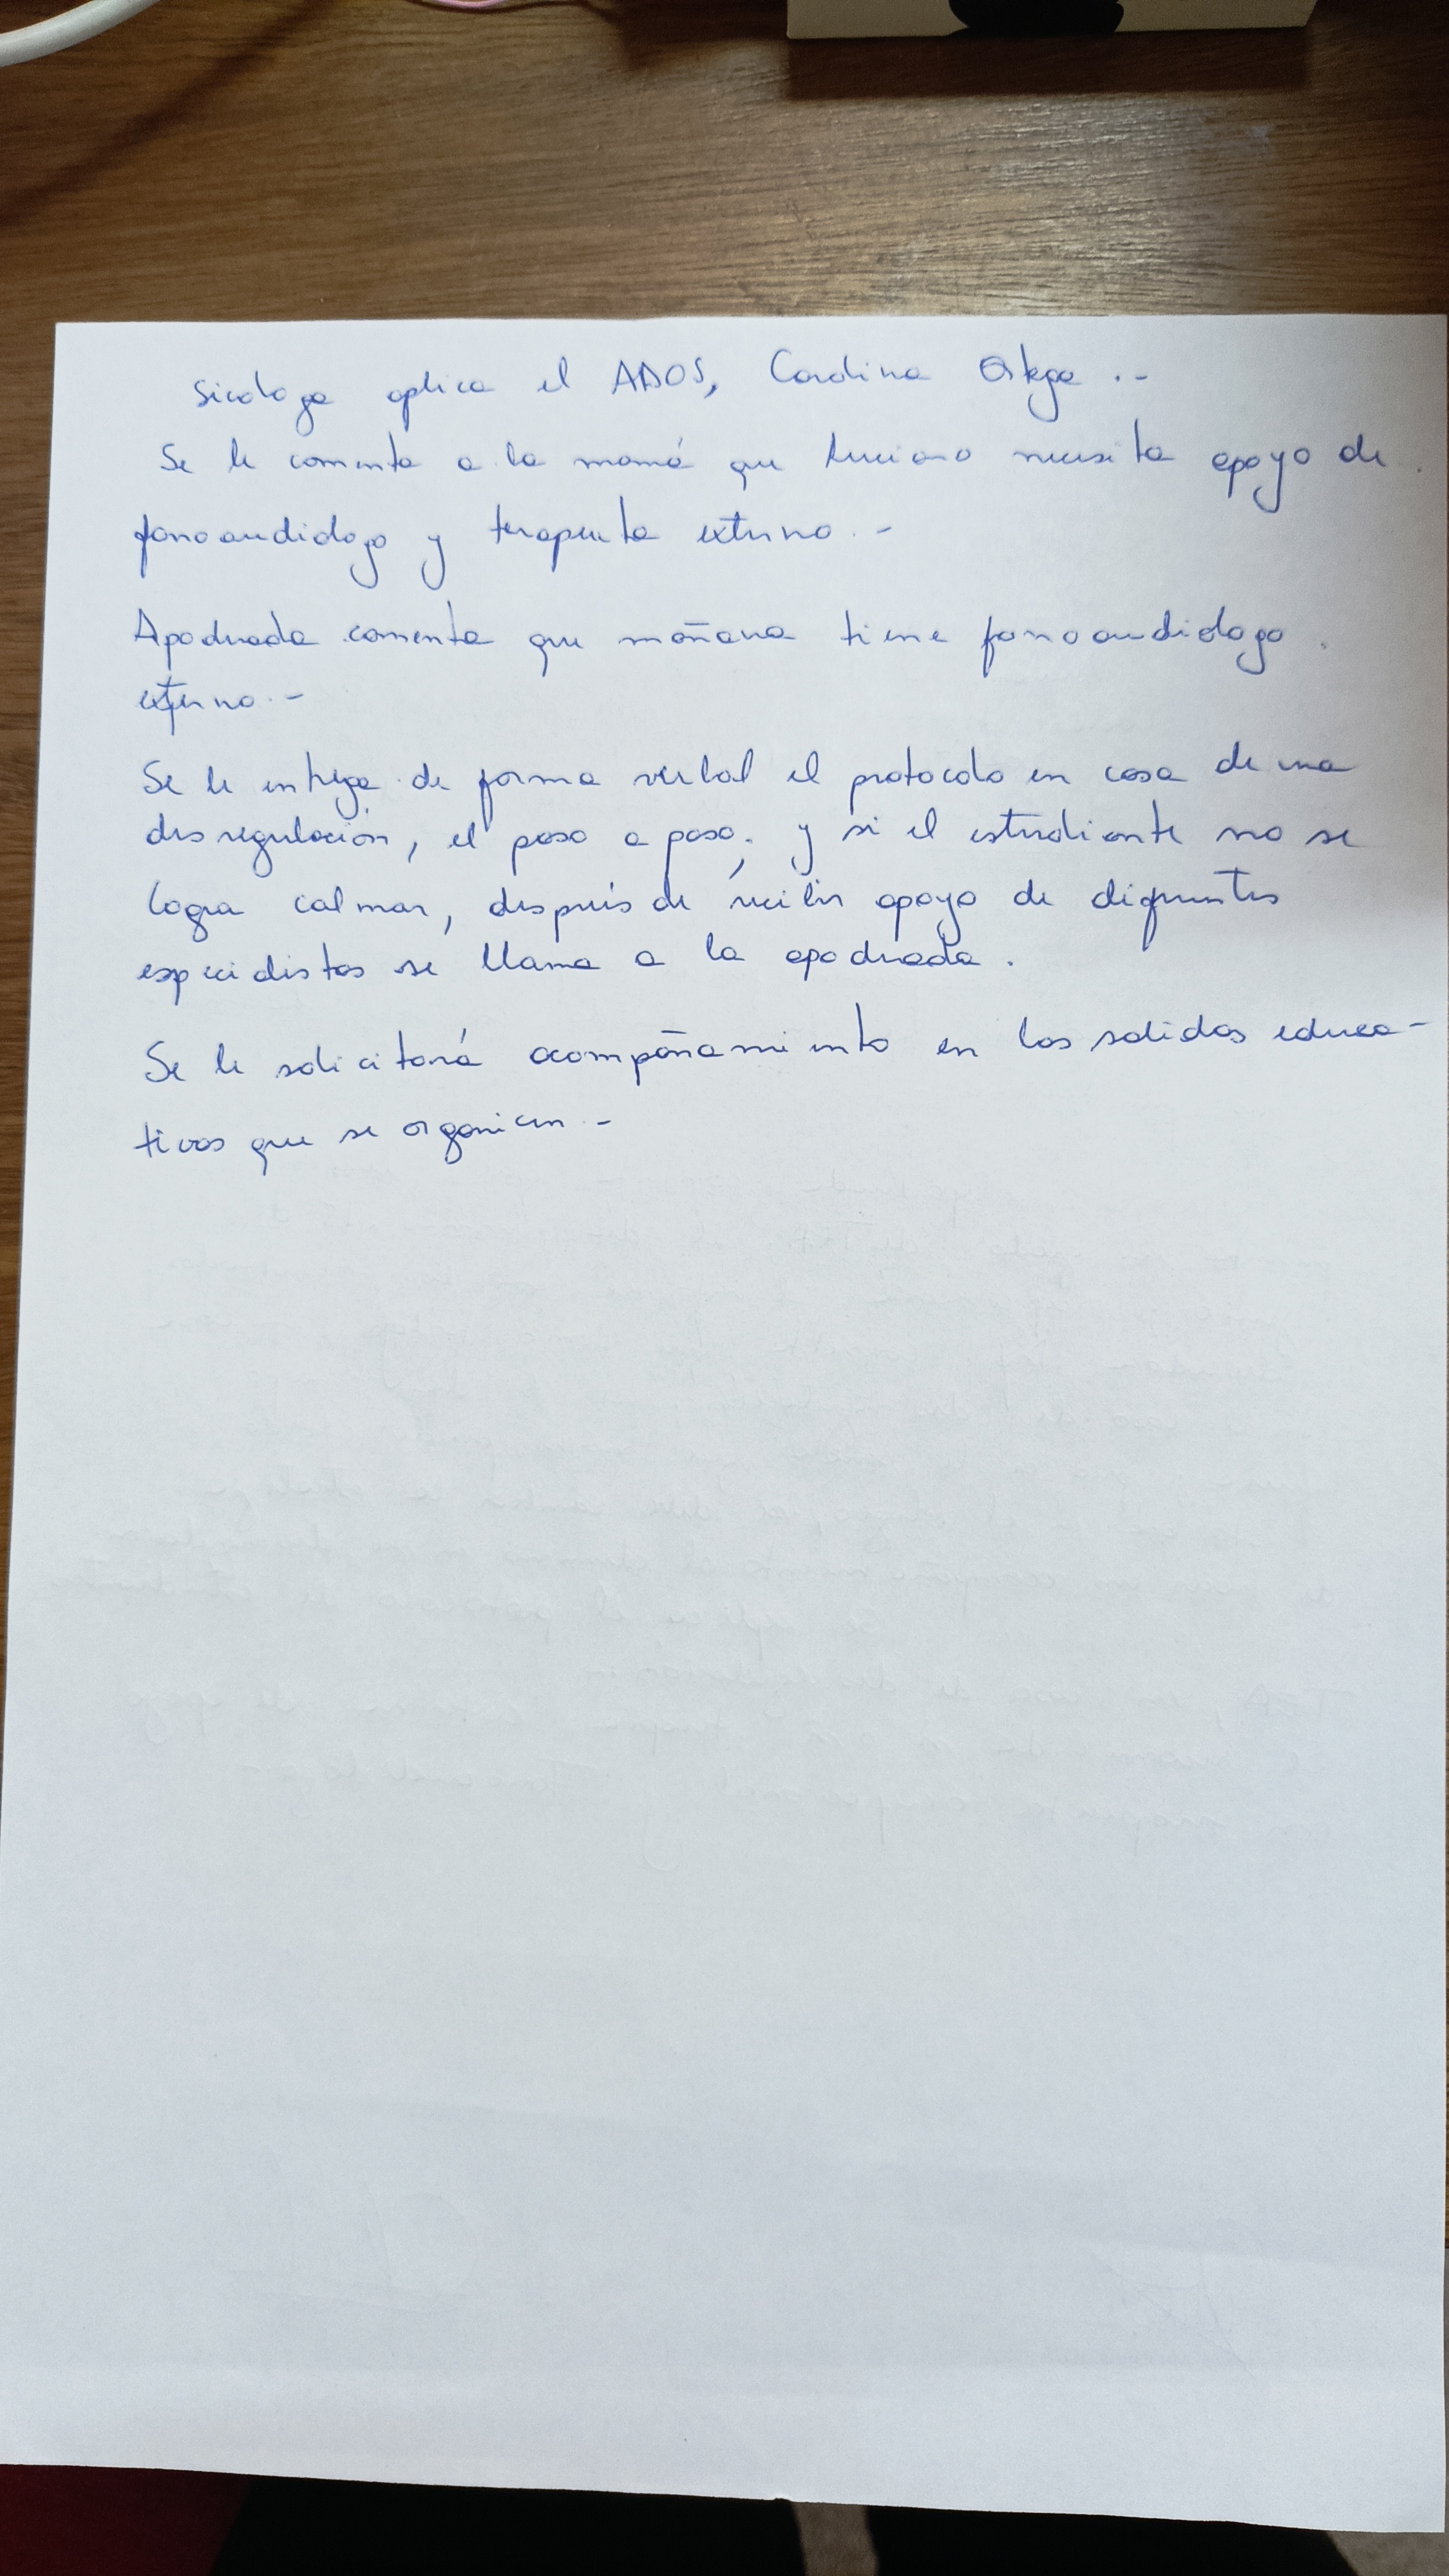 Sicologa aplica el ADOS, Carolina Ortega .-
Se le comenta a la mamá que Luciano necesita apoyo de
fonoaudiologo y terapeuta externo.-
Apoderada comenta que mañana tiene fonoaudiologo
externo.-
Se le entrega de forma verbal el protocolo en caso de una
desregulación, el paso a paso; y si el estudiante no se
logra calmar, después de recibir apoyo de diferentes
especialistas se llama a la apoderada.
Se le solicitará acompañamiento en las salidas educa-
tivas que se organicen.-